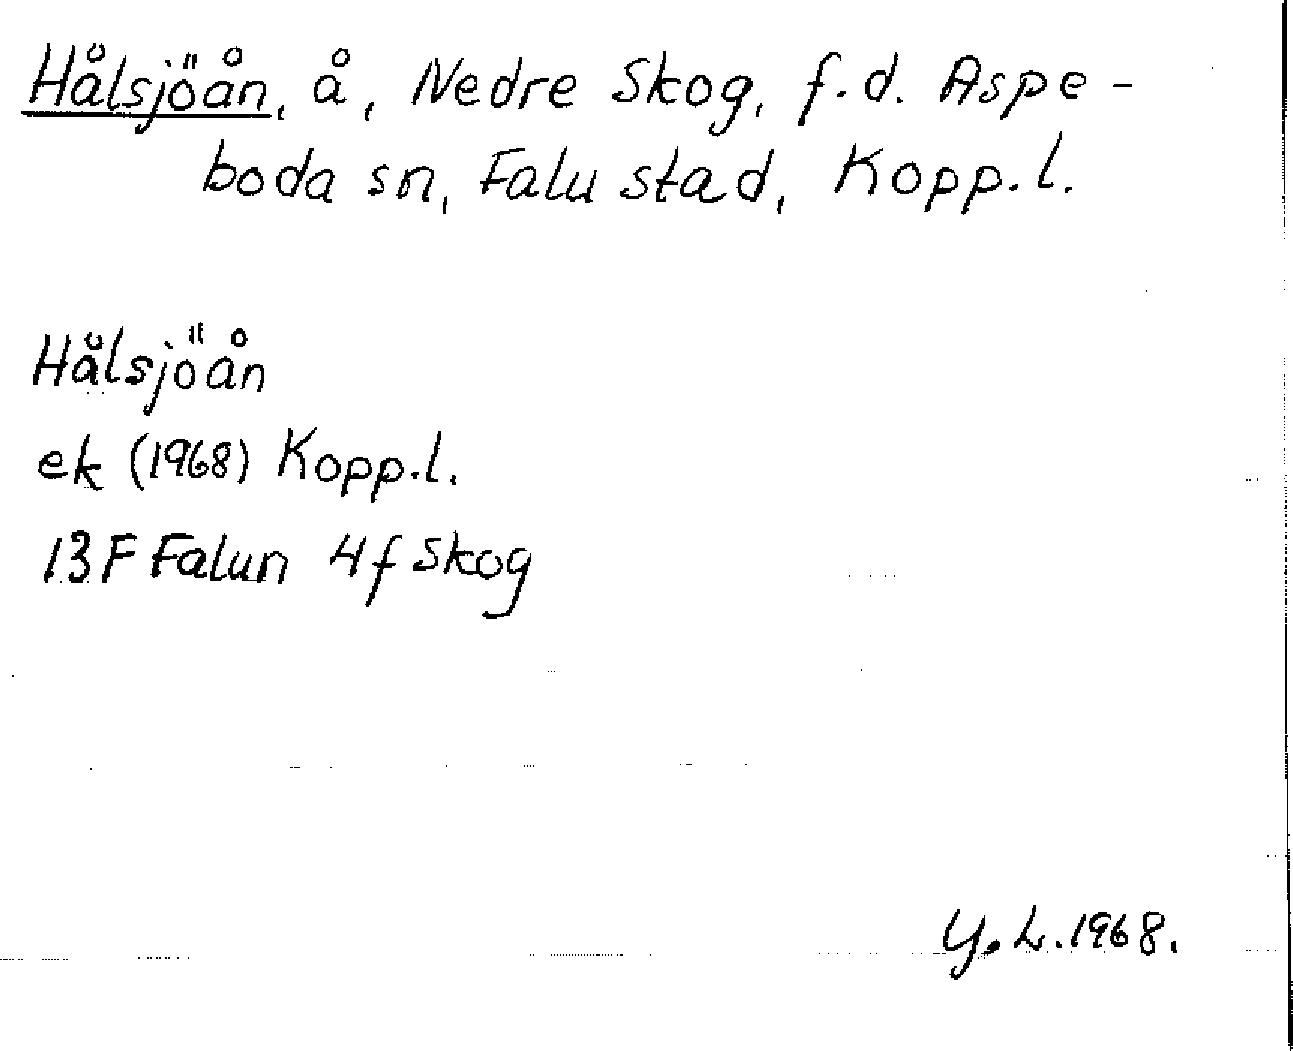 Hålsjöån, å, Nedre Skog, f.d. Aspe-
boda sn, Falu stad, Kopp.l.
Hålsjöån
ek (1968) Kopp.l.
13F Falun 4f Skog
Y.L.1968.